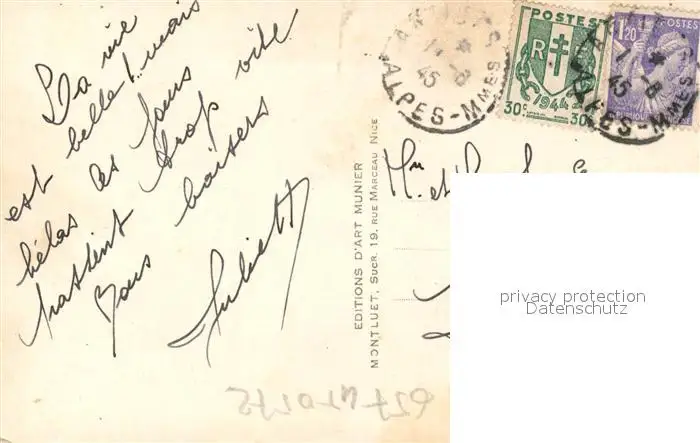 La vie
est belle! mais
hélas les jours
passent trop vite
Bons baisers
Juliette
EDITIONS D'ART MUNIER
MONTLUET, Sucr. 19, RUE MARCEAU NICE
POSTES
RF
30c 1944 30c
1,20
ALPES-Mmes
45
ALPES-Mmes
45
et
privacy protection
Datenschutz